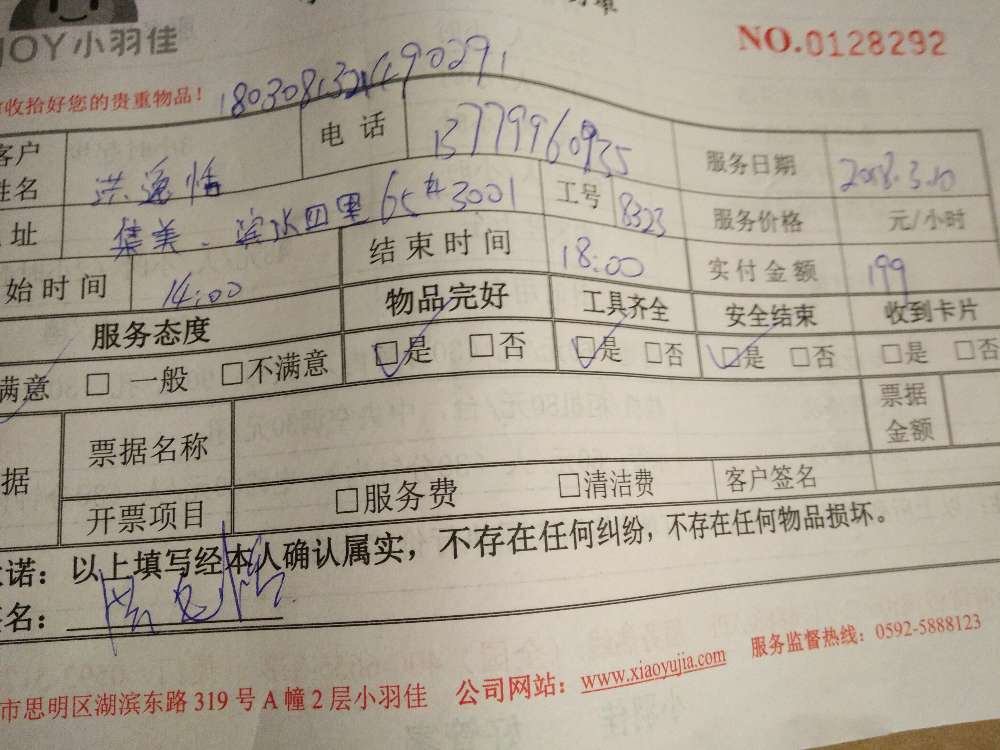 JOY小羽佳
NO.0128292
收拾好您的贵重物品！
客户姓名 洪逸恬 电话 13779960935 服务日期 2018.3.10
址 集美、滨水四里65#3001 工号 8323 服务价格 元/小时
始时间 14:00 结束时间 18:00 实付金额 199
服务态度 物品完好 工具齐全 安全结束 收到卡片
满意 □ 一般 □不满意 □是 □否 □是 □否 □是 □否 □是 □否
据 票据名称 票据金额
开票项目 □服务费 □清洁费 客户签名
诺：以上填写经本人确认属实，不存在任何纠纷，不存在任何物品损坏。
签名：
市思明区湖滨东路319号A幢2层小羽佳 公司网站：www.xiaoyujia.com 服务监督热线：0592-5888123